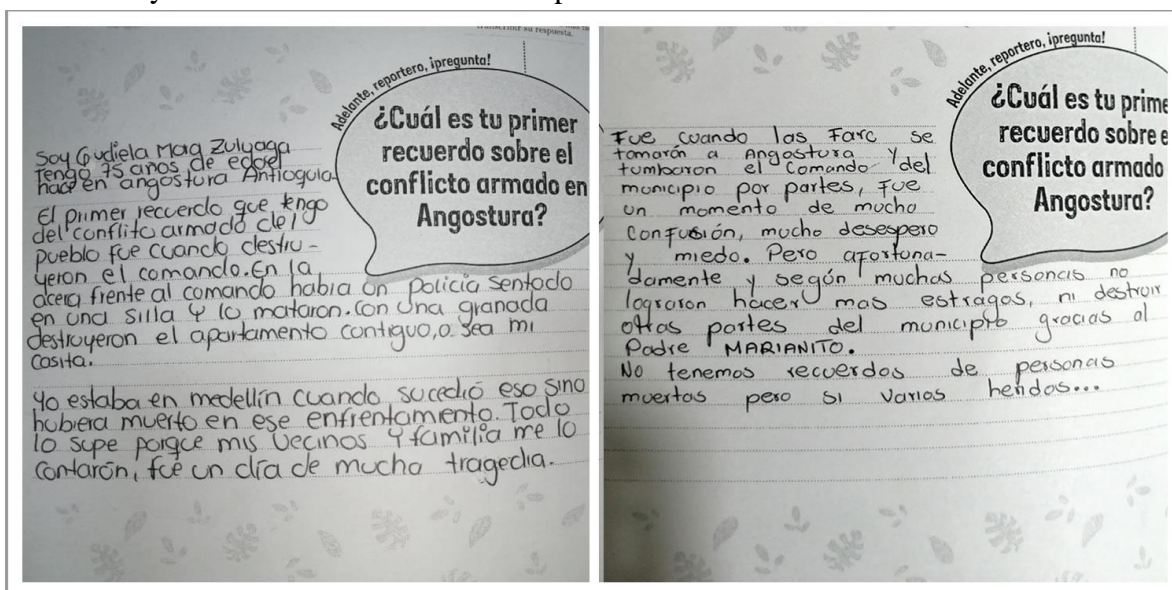 transcribir su respuesta.
Adelante, reportero, ¡pregunta!
¿Cuál es tu primer
recuerdo sobre el
conflicto armado en
Angostura?
Soy Gudiela Maa Zuluaga
Tengo 75 años de edad
naci en angostura Antioquia
El primer recuerdo que tengo
del conflito armado del
pueblo fue cuando destru-
yeron el comando. En la
acera frente al comando habia un policía sentado
en una silla y lo mataron. Con una granada
destruyeron el apartamento contiguo, o sea mi
casita.
Yo estaba en medellín cuando sucedió eso sino
hubiera muerto en ese enfrentamiento. Todo
lo supe porque mis vecinos y familia me lo
contarón, fue un día de mucha tragedia.
Adelante, reportero, ¡pregunta!
¿Cuál es tu prime
recuerdo sobre e
conflicto armado
Angostura?
Fue cuando las Farc se
tomarón a Angostura y
tumbaron el Comando del
municipio por partes, Fue
un momento de mucho
confusión, mucho desespero
y miedo. Pero afortuna-
damente y según muchas personas no
lograron hacer mas estragos, ni destruir
otras partes del municipio gracias al
Padre MARIANITO.
No tenemos recuerdos de personas
muertas pero si varios heridos...